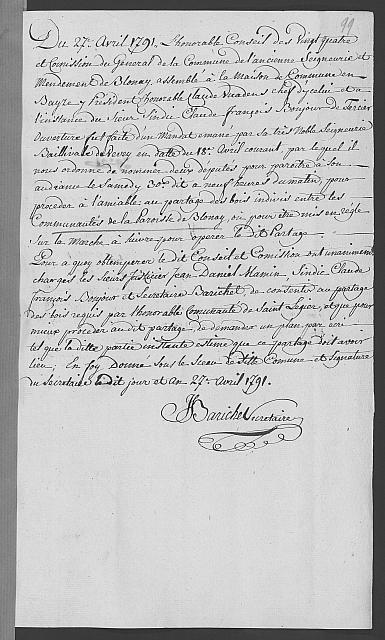 99
Du 27e. Avril 1791. Lhonorable Conseil des Vingt quatre
et Comission du General de la Commune de l'ancienne Seigneurie et
Mendement de Blonay, assemblé à la Maison de Commune en
Bayre y President honorable Claude Vuadens chef d'ycelui et a
l'instance du Sieur Sindic Claude françois Bonjour de Tercier
Ouverture fut faite d'un Mendat emané par sa très Noble Seigneurie
Baillivale de Vevey en datte du 18e. Avril courant, par lequel il
nous ordonne de nommer deux deputés pour paroitre à son
audiance le Samedy 30e. dit a neuf heures du matin, pour
proceder à l'amiable au partage des bois indivis entre les
Communautés de la Paroisse de Blonay, ou pour etre mis en regle
Sur la Marche à suivre pour operer le dit Partage
Pour a quoy obtemperer le dit Conseil et Comission ont unanimemt.
charges les Sieurs Justicier Jean Daniel Mamin, Sindic Claude
françois Bonjour et Secretaire Barichet, de consentir au partage
des bois requis par l'honorable Comunauté de Saint Legier, et que pour
mieux proceder au dit partage de demander un plan par ecri
tel que la ditte partie instante estime que ce partage doit avoir
lieu. En foy Donné Sous le Sceau de dite Comune et Signature
du Secretaire le dit jour et An 27e. Avril 1791.
Barichet Secretaire